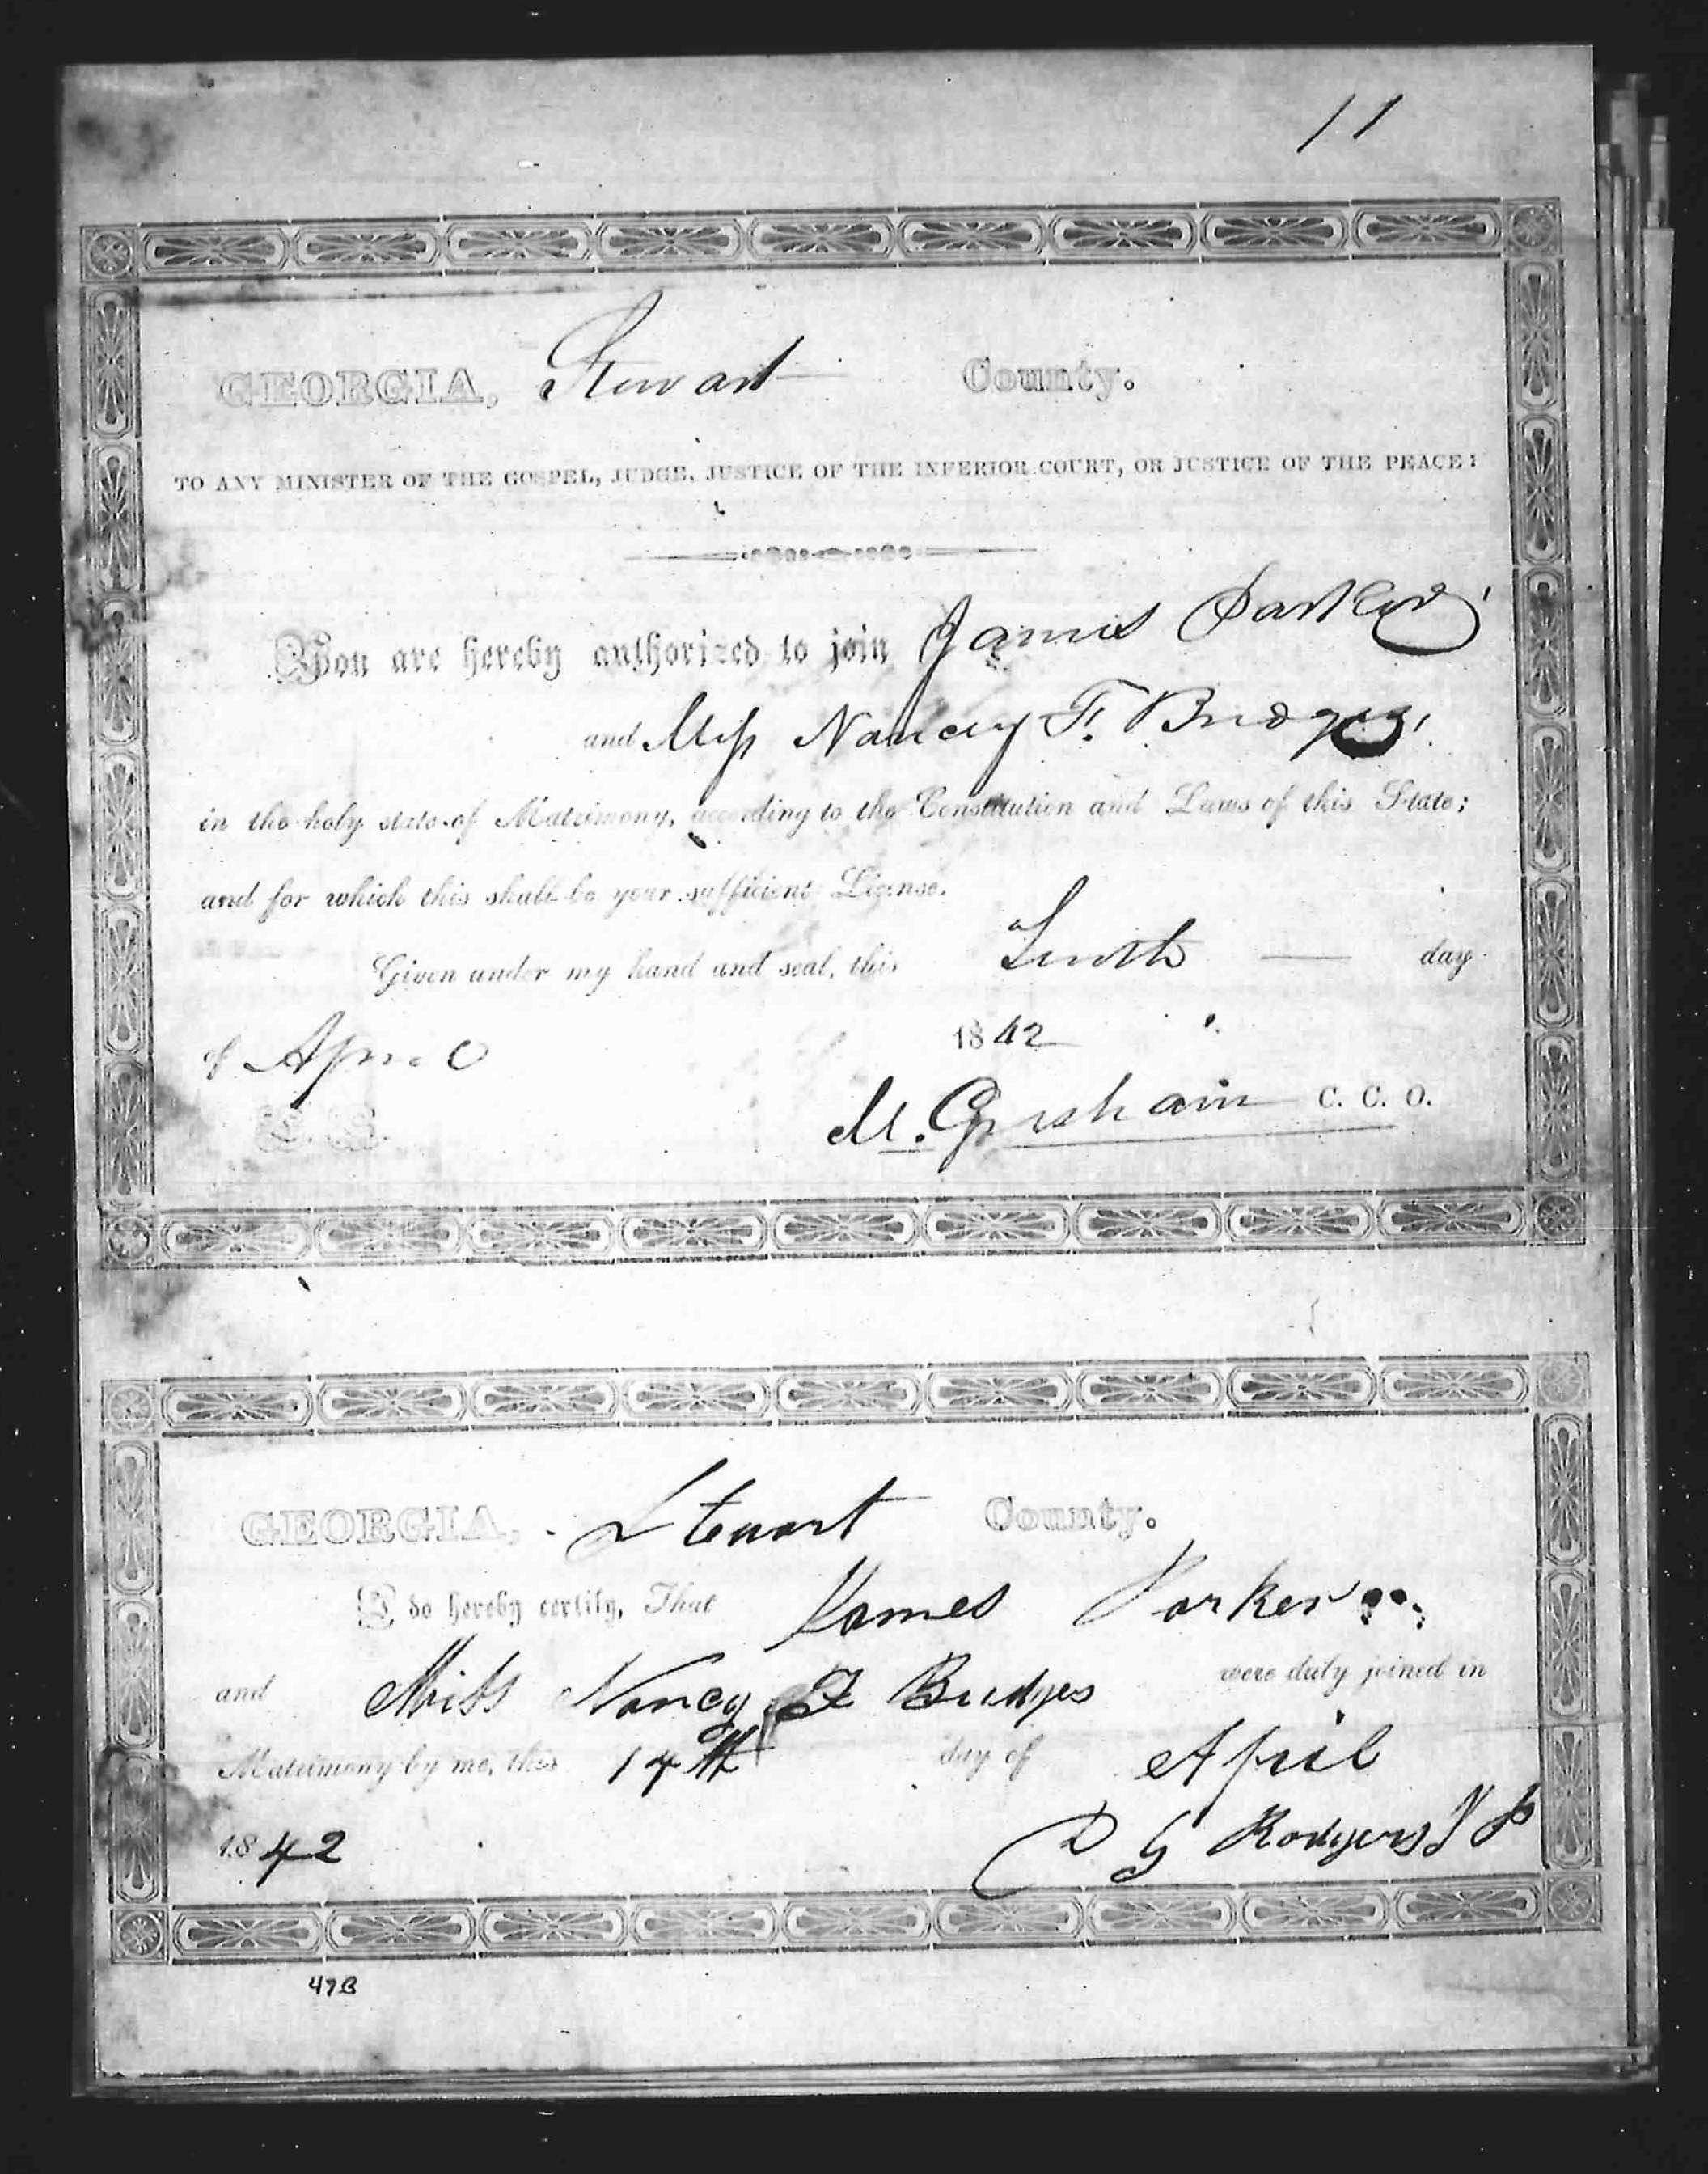 11
GEORGIA, Stewart County.
TO ANY MINISTER OF THE GOSPEL, JUDGE, JUSTICE OF THE INFERIOR COURT, OR JUSTICE OF THE PEACE:
You are hereby authorized to join James Parker
and Miss Nancy F. Bridges
in the holy state of Matrimony, according to the Constitution and Laws of this State;
and for which this shall be your sufficient License.
Given under my hand and seal, this Tenth day
of April 1842
M. Gresham C. C. O.
L. S.
GEORGIA, Stewart County.
I do hereby certify, That James Parker
and Miss Nancy F Bridges were duly joined in
Matrimony by me, this 14th day of April
1842
D G Rodgers J P
47B